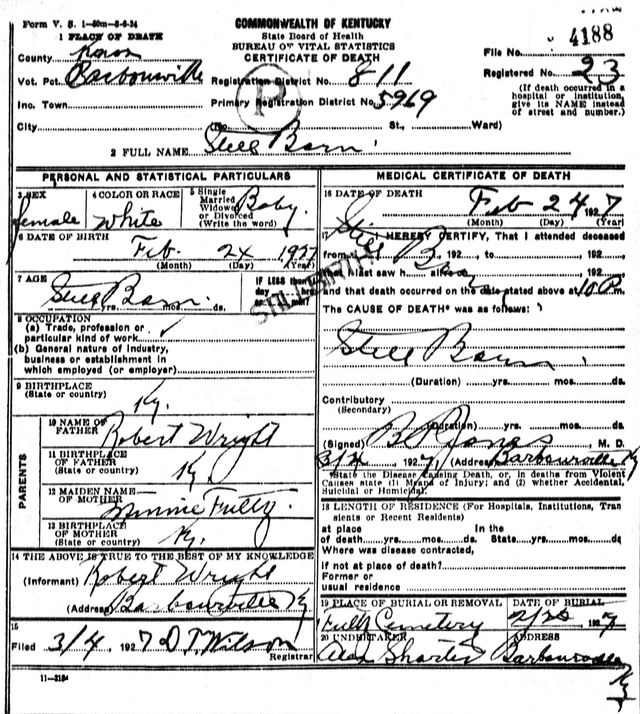 Form V. S. 1-50m-8-6-24
COMMONWEALTH OF KENTUCKY
State Board of Health
BUREAU OF VITAL STATISTICS
CERTIFICATE OF DEATH
4188
1 PLACE OF DEATH
County Knox
File No.
Vot. Pct. Barbourville Registration District No. 811 Registered No. 23
Inc. Town Primary Registration District No. 5969
(If death occurred in a hospital or institution, give its NAME instead of street and number.)
City (No. St., Ward)
P
2 FULL NAME Still Born
PERSONAL AND STATISTICAL PARTICULARS
3 SEX female
4 COLOR OR RACE White
5 Single Married Widowed or Divorced (Write the word) Baby
6 DATE OF BIRTH Feb 24 1927
(Month) (Day) (Year)
7 AGE Still Born
yrs. mos. ds.
IF LESS than
day hrs.
or min.
STILLBIRTH
8 OCCUPATION
(a) Trade, profession or particular kind of work
(b) General nature of industry, business or establishment in which employed (or employer)
9 BIRTHPLACE
(State or country) Ky.
PARENTS
10 NAME OF FATHER Robert Wright
11 BIRTHPLACE OF FATHER
(State or country) Ky
12 MAIDEN NAME OF MOTHER Minnie
13 BIRTHPLACE OF MOTHER
(State or country) Ky.
14 THE ABOVE IS TRUE TO THE BEST OF MY KNOWLEDGE
(Informant) Robert Wright
(Address) Barbourville Ky
15
Filed 3/4, 1927 D T Wilson
Registrar
11-3184
MEDICAL CERTIFICATE OF DEATH
16 DATE OF DEATH Feb 24 1927
(Month) (Day) (Year)
17 I HEREBY CERTIFY, That I attended deceased
from , 192 , to , 192
Still Born
I last saw h alive on , 192
and that death occurred on the date stated above at 10 P.
The CAUSE OF DEATH* was as follows:
Still Born
(Duration) yrs. mos. ds
Contributory
(Secondary)
(Duration) yrs. mos. ds
(Signed) Jones, M. D.
3/4, 1927, (Address) Barbourville Ky
*State the Disease Causing Death, or, in deaths from Violent Causes state (1) Means of Injury; and (2) whether Accidental, Suicidal or Homicidal.
18 LENGTH OF RESIDENCE (For Hospitals, Institutions, Transients or Recent Residents)
at place In the
of death yrs. mos. ds. State yrs. mos. ds
Where was disease contracted,
if not at place of death?
Former or
usual residence
19 PLACE OF BURIAL OR REMOVAL DATE OF BURIAL
Cemetery 1927
20 UNDERTAKER ADDRESS
Barbourville
Ky